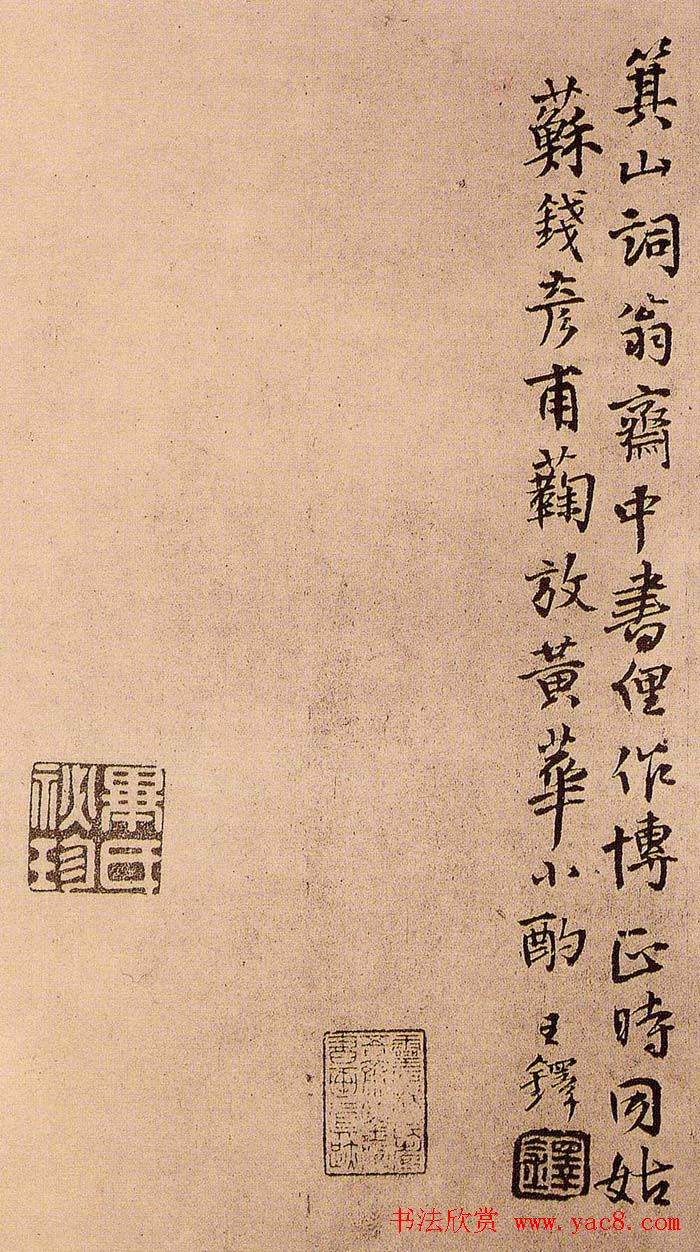 箕山詞翁齋中書俚作博正時同姑
蘇錢彥甫蘜放黃華小酌
王鐸
鐸
書法欣赏 www.yac8.com